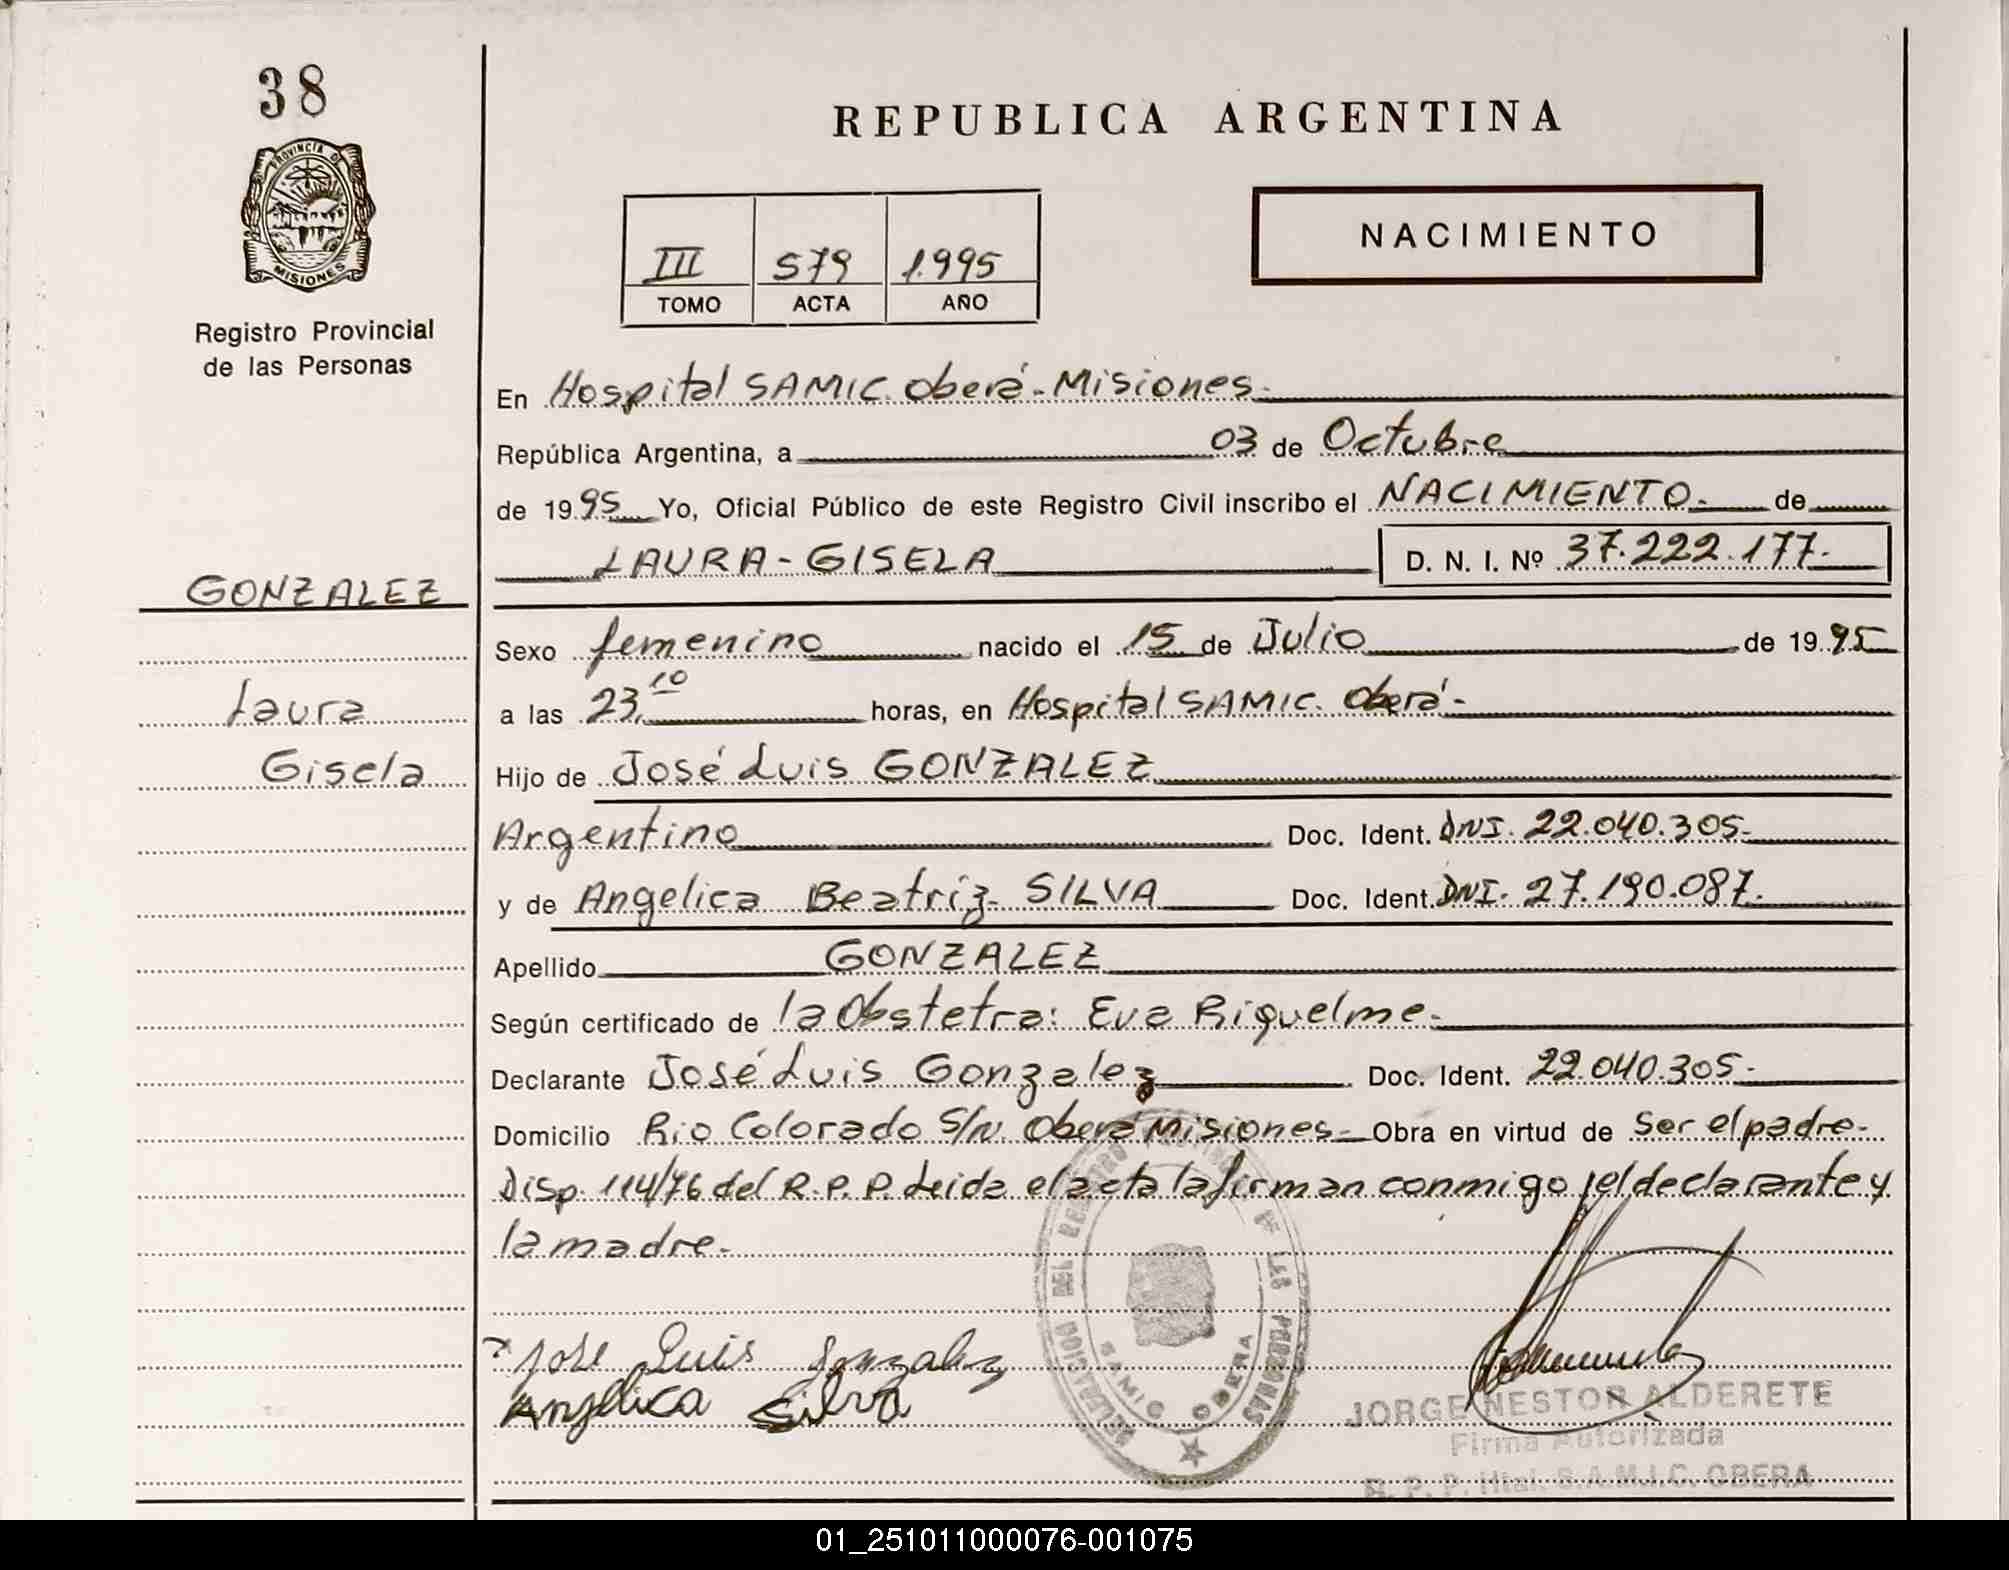 38
PROVINCIA DE
MISIONES
Registro Provincial
de las Personas
GONZALEZ
Laura
Gisela
REPUBLICA ARGENTINA
III 579 1.995
TOMO ACTA AÑO
NACIMIENTO
En Hospital SAMIC. Oberá - Misiones.
República Argentina, a 03 de Octubre
de 19 95 Yo, Oficial Público de este Registro Civil inscribo el NACIMIENTO. de
LAURA - GISELA D. N. I. Nº 37.222.177.
Sexo femenino nacido el 15 de Julio de 19 95
a las 23,10 horas, en Hospital SAMIC. Oberá -
Hijo de José Luis GONZALEZ
Argentino Doc. Ident. DNI. 22.040.305-
y de Angelica Beatriz SILVA Doc. Ident. DNI. 27.190.087.
Apellido GONZALEZ
Según certificado de la Obstetra: Eva Riquelme.
Declarante José Luis Gonzalez Doc. Ident. 22.040.305-
Domicilio Rio Colorado S/N. Oberá Misiones - Obra en virtud de Ser el padre -
Disp. 114/76 del R.P.P. Leida el acta la firman conmigo, el declarante y
la madre.
Jose Luis Gonzalez
Angelica Silva
DELEGACION DEL REGISTRO PROVINCIAL DE LAS PERSONAS
SAMIC OBERA
JORGE NESTOR ALDERETE
Firma Autorizada
R. P. P. Htal. S.A.M.I.C. OBERA
01_251011000076-001075